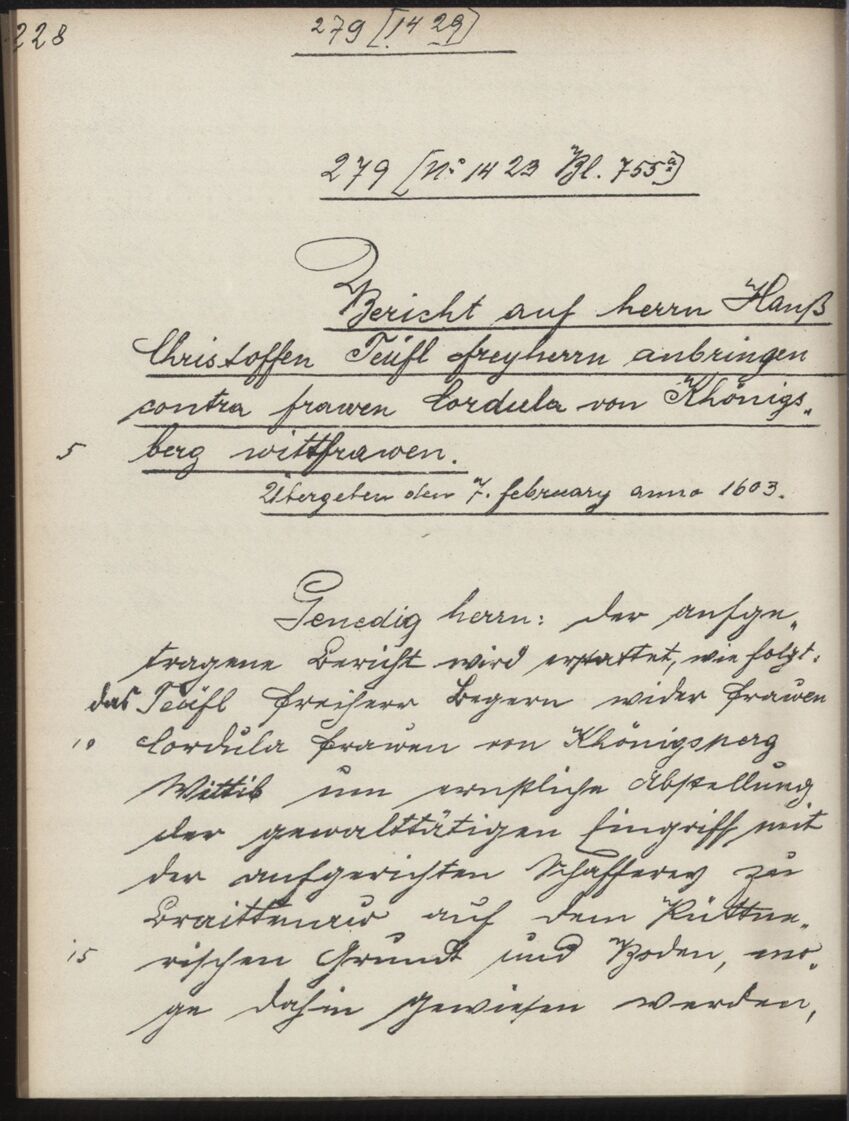 228
279 [14 29]
279 [No 14 23 Bl. 755a]
Bericht auf herrn Hanß
Christoffen Teüfl freyherrn anbringen
contra frawen Cordula von Khönigs„
5 berg wittfrawen.
Übergeben den 7. february anno 1603.
Genedig herrn: der aufge„
tragene Bericht wird erstattet, wie folgt:
das Teüfl freiherr Begern wider frawen
10 Cordula frawen von Khönigsperg
Wittib um ernstliche Abstellung
der gewalttätigen Eingriff, mit
der aufgerichten Schafferey zu
Braittenaw auf dem Püttne„
15 rischen Grundt und Boden, mö„
ge dahin gewiesen werden,